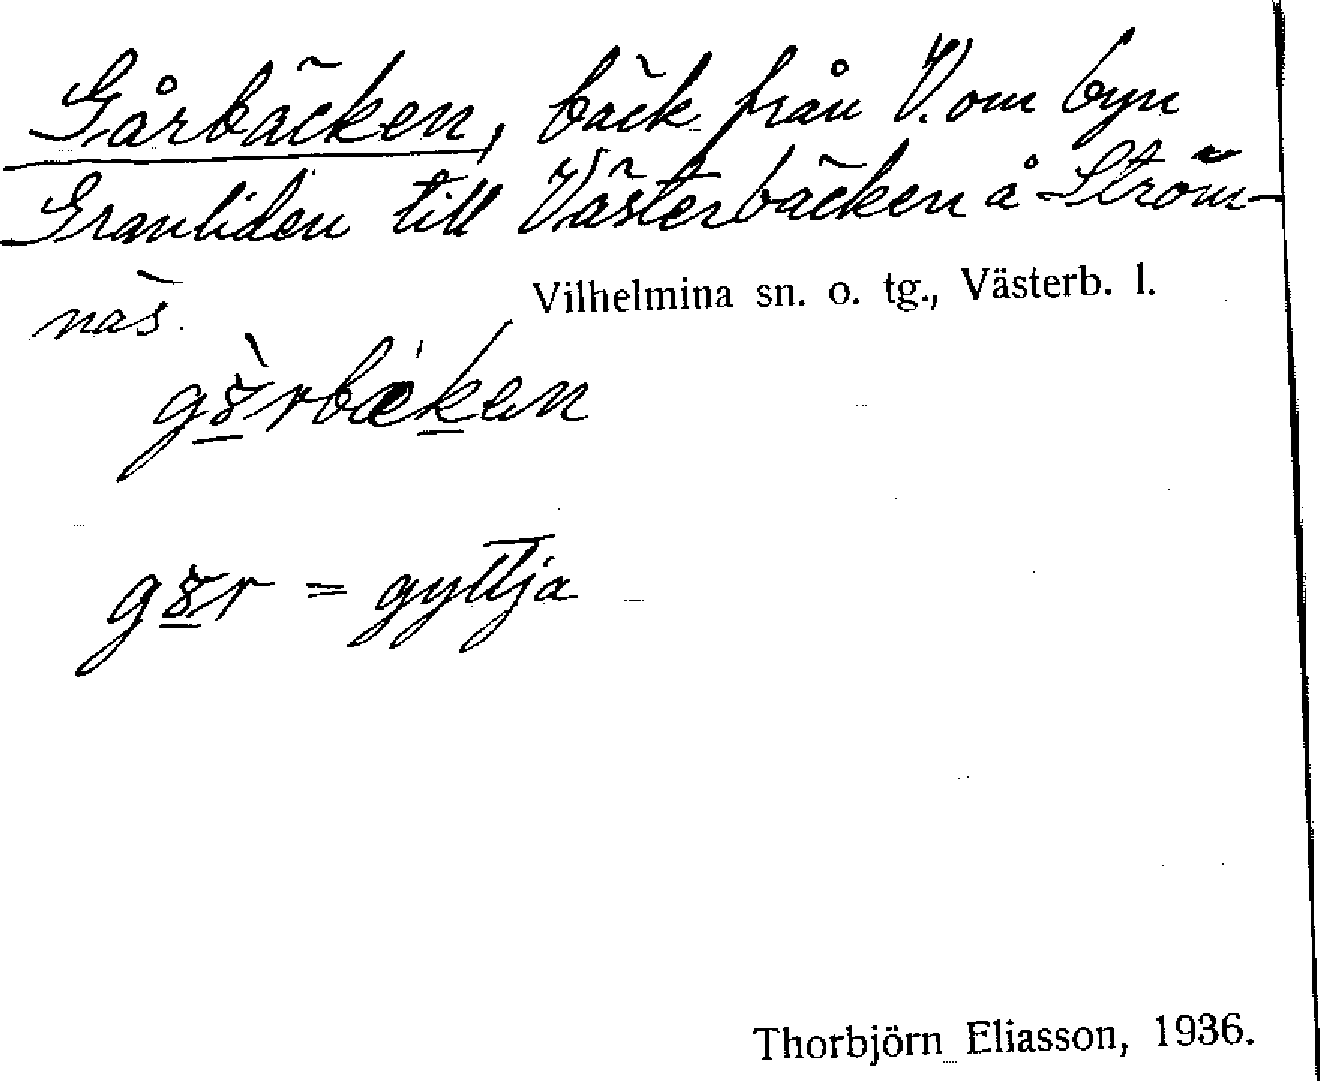 Gårbäcken, bäck från V. om byn
Granliden till Västerbäcken å Ström-
näs.
Vilhelmina sn. o. tg., Västerb. l.
= gyttja
Thorbjörn Eliasson, 1936.